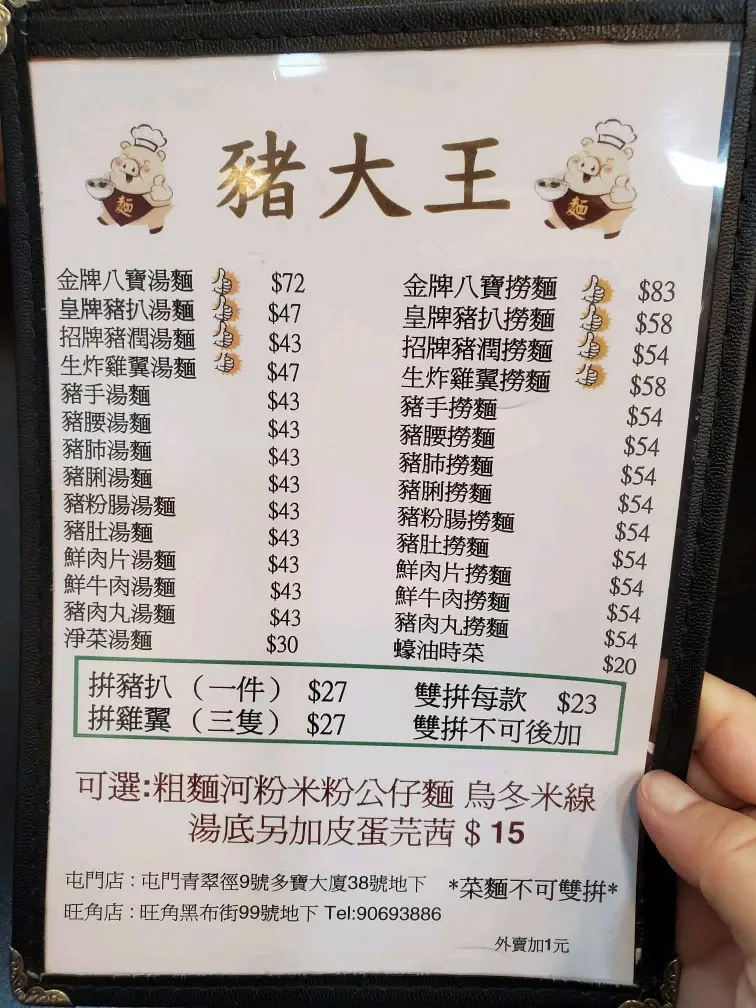 豬大王
麵
麵
金牌八寶湯麵 $72
皇牌豬扒湯麵 $47
招牌豬潤湯麵 $43
生炸雞翼湯麵 $47
豬手湯麵 $43
豬腰湯麵 $43
豬肺湯麵 $43
豬脷湯麵 $43
豬粉腸湯麵 $43
豬肚湯麵 $43
鮮肉片湯麵 $43
鮮牛肉湯麵 $43
豬肉丸湯麵 $43
淨菜湯麵 $30
金牌八寶撈麵 $83
皇牌豬扒撈麵 $58
招牌豬潤撈麵 $54
生炸雞翼撈麵 $58
豬手撈麵 $54
豬腰撈麵 $54
豬肺撈麵 $54
豬脷撈麵 $54
豬粉腸撈麵 $54
豬肚撈麵 $54
鮮肉片撈麵 $54
鮮牛肉撈麵 $54
豬肉丸撈麵 $54
蠔油時菜 $20
拚豬扒（一件） $27 雙拚每款 $23
拚雞翼（三隻） $27 雙拚不可後加
可選:粗麵河粉米粉公仔麵 烏冬米線
湯底另加皮蛋芫茜 $ 15
屯門店：屯門青翠徑9號多寶大廈38號地下 *菜麵不可雙拚*
旺角店：旺角黑布街99號地下 Tel:90693886
外賣加1元